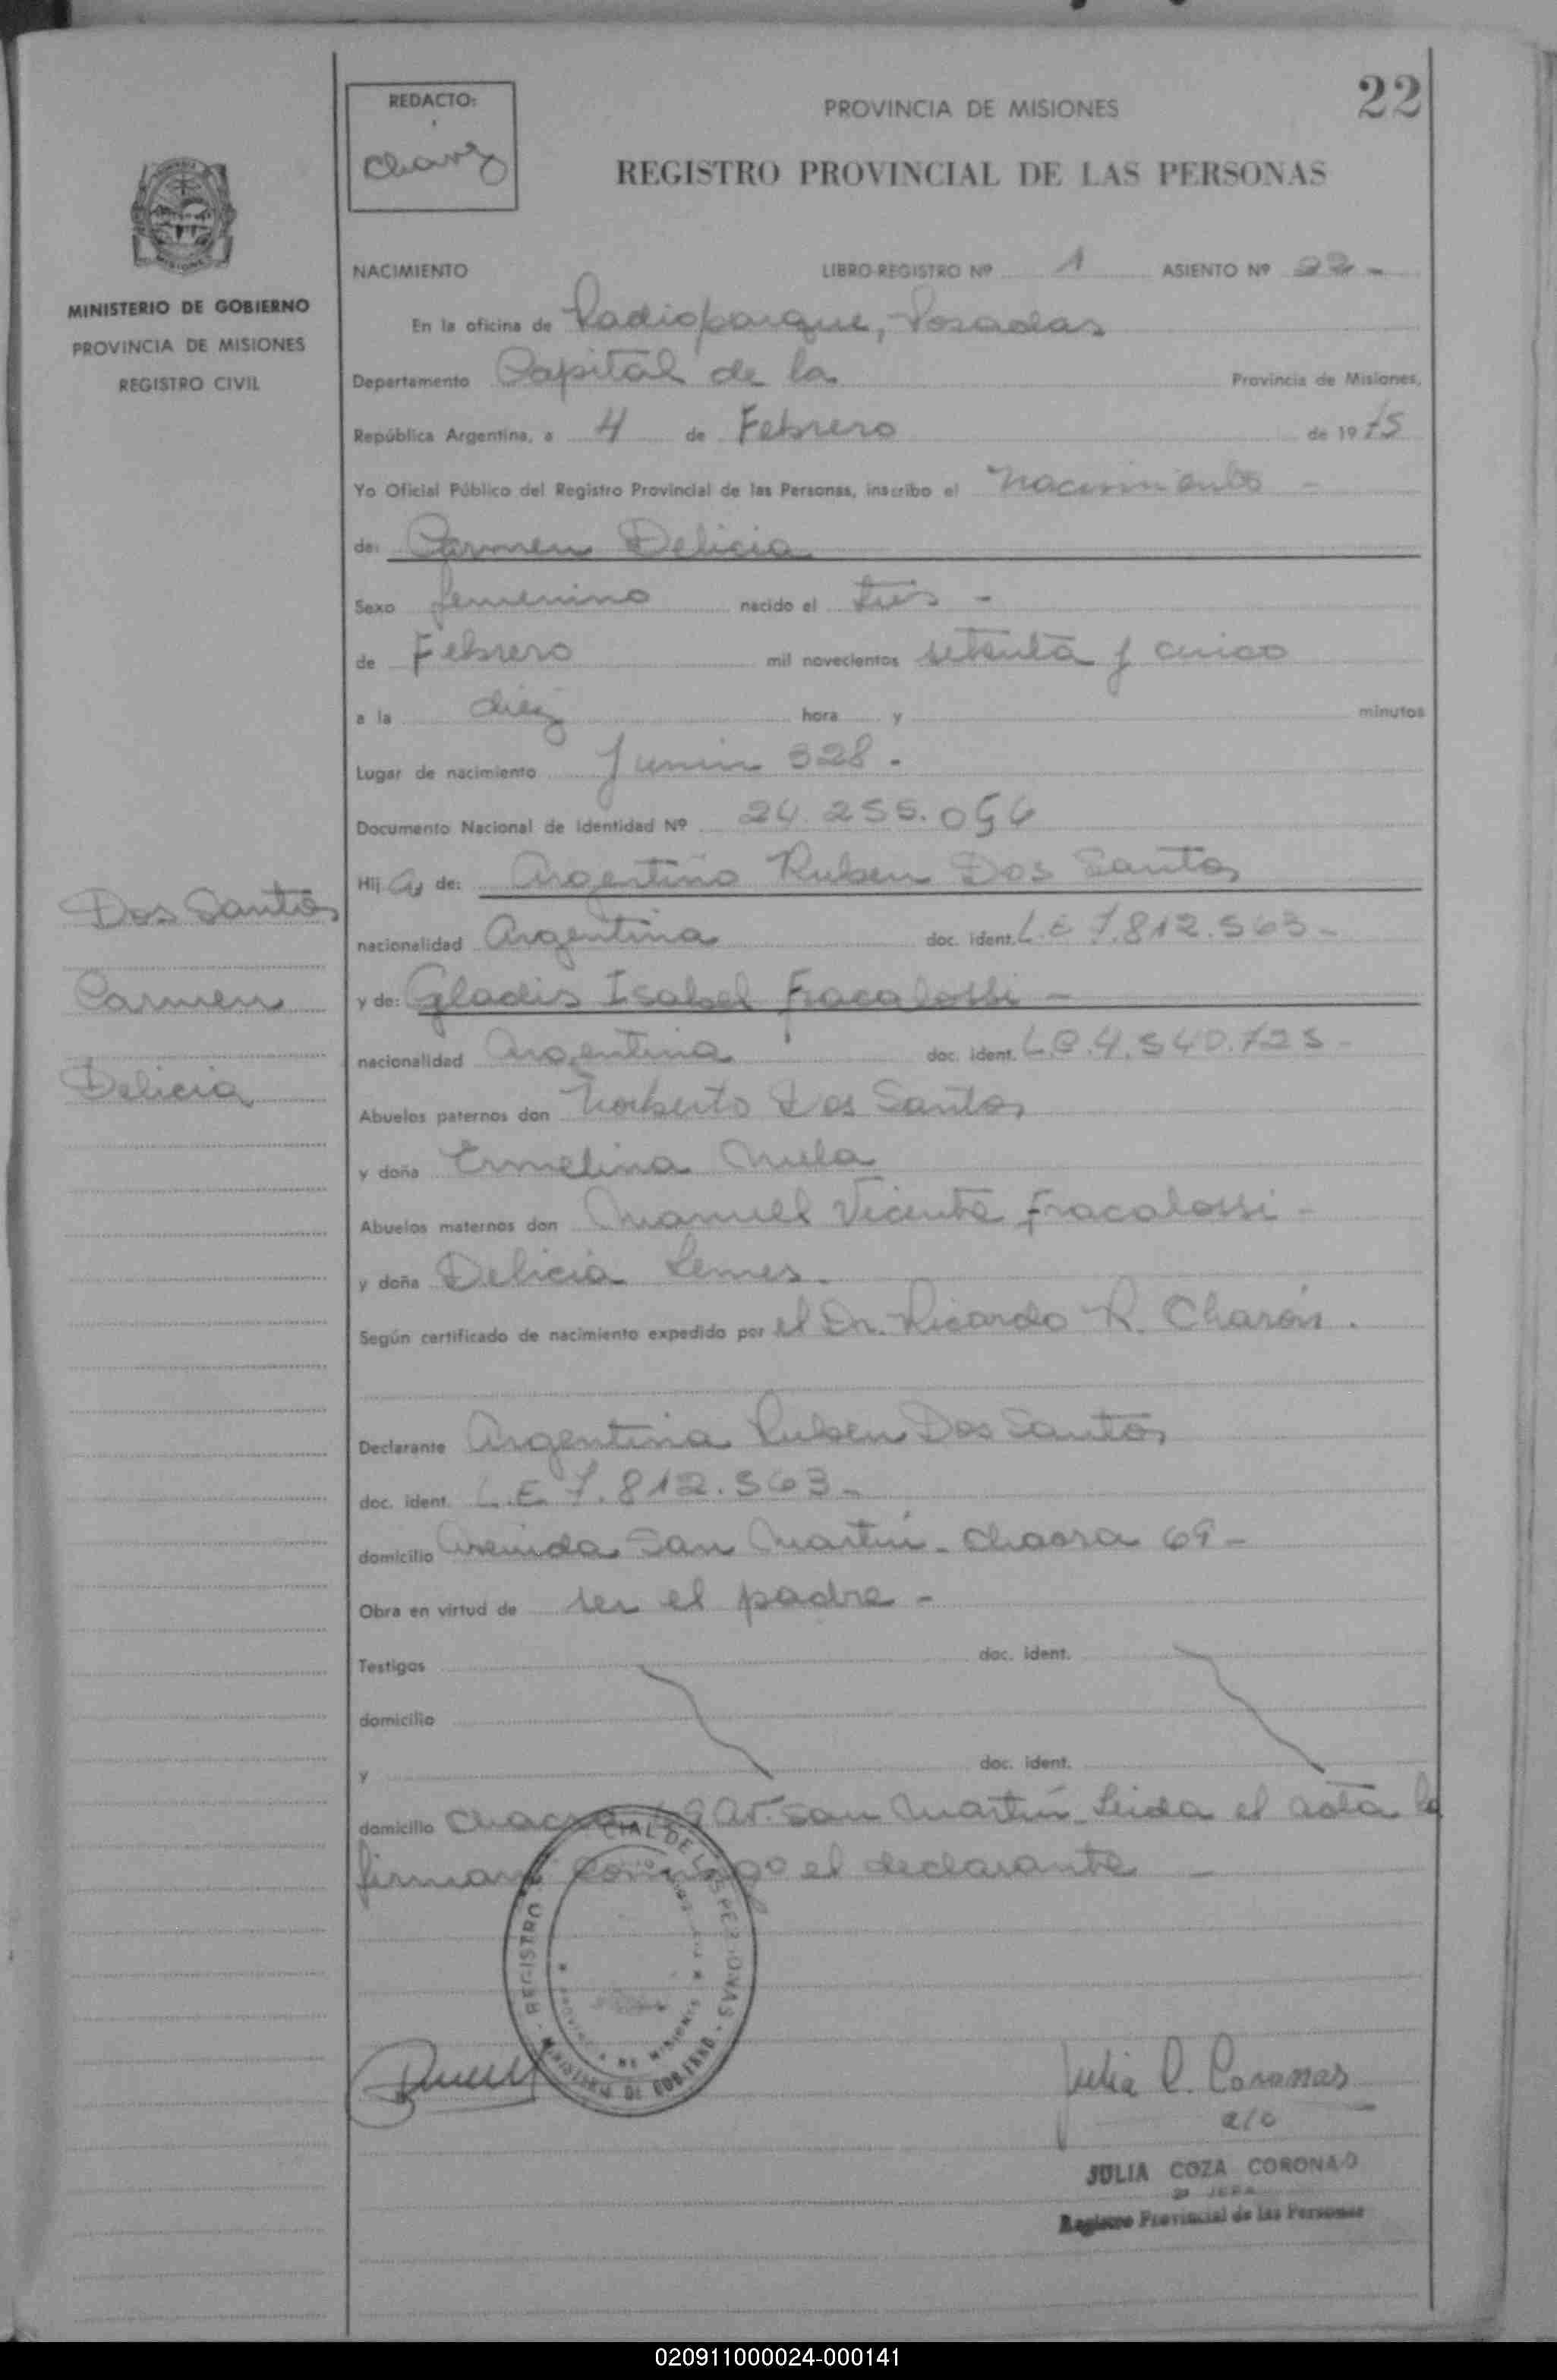 22
REDACTO:
Chavez
PROVINCIA DE MISIONES
REGISTRO PROVINCIAL DE LAS PERSONAS
MINISTERIO DE GOBIERNO
PROVINCIA DE MISIONES
REGISTRO CIVIL
NACIMIENTO LIBRO-REGISTRO Nº 1 ASIENTO Nº 22 -
En la oficina de Radioparque, Posadas
Departamento Capital de la Provincia de Misiones,
República Argentina, a 4 de Febrero de 1975
Yo Oficial Público del Registro Provincial de las Personas, inscribo el nacimiento -
de: Carmen Delicia
Sexo femenino nacido el tres -
de Febrero mil novecientos setenta y cinco
a la diez hora y minutos
Lugar de nacimiento Junin 328 -
Documento Nacional de Identidad Nº 24.255.056
Hij a de: Argentino Ruben Dos Santos
nacionalidad Argentina doc. ident. L.E 7.812.563 -
y de: Gladis Isabel Fracalossi -
nacionalidad Argentina doc. ident. L.C. 4.540.725 -
Abuelos paternos don Norberto Dos Santos
y doña Ermelina
Abuelos maternos don Manuel Vicente Fracalossi -
y doña Delicia Lemes -
Según certificado de nacimiento expedido por el Dr. Ricardo R. Charón .
Declarante Argentina Ruben Dos Santos
doc. ident. L.E. 7.812.563 -
domicilio Avenida San Martín - Chacra 69 -
Obra en virtud de ser el padre -
Testigos doc. ident.
domicilio
y doc. ident.
domicilio Chacra 69 av. San Martín Leida el acta la
firman conmigo el declarante -
Dos Santos
Carmen
Delicia
REGISTRO CIAL DE LAS PERSONAS - MINISTERIO DE GOBIERNO
PROVINCIA DE MISIONES
Julia C. Coronas
a/c
JULIA COZA CORONAO
JEFA
Registro Provincial de las Personas
020911000024-000141